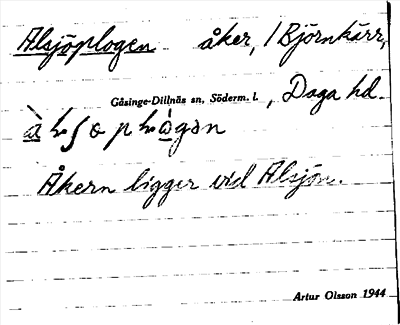 Alsjöplogen åker, / Björnkärr,
Gåsinge-Dillnäs sn, Söderm. l., Daga hd.
Åkern ligger vid Alsjön.
Artur Olsson 1944